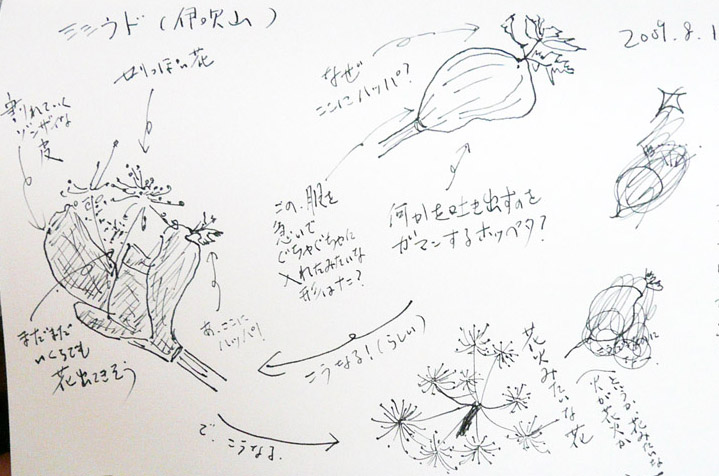 シシウド(伊吹山)
2009.8.1
せりっぽい花
割れていく
ゾンザイな
皮
なぜ
ここにハッパ?
この、服を
急いで
ぐちゃぐちゃに
入れたみたいな
形はナニ?
何かを吐き出すのを
ガマンするホッペタ?
まだまだ
いくらでも
花出てきそう
あ、ここに
ハッパ!
こうなる!(らしい)
で、こうなる。
花火みたいな花
というか花みたいな
火が花火か